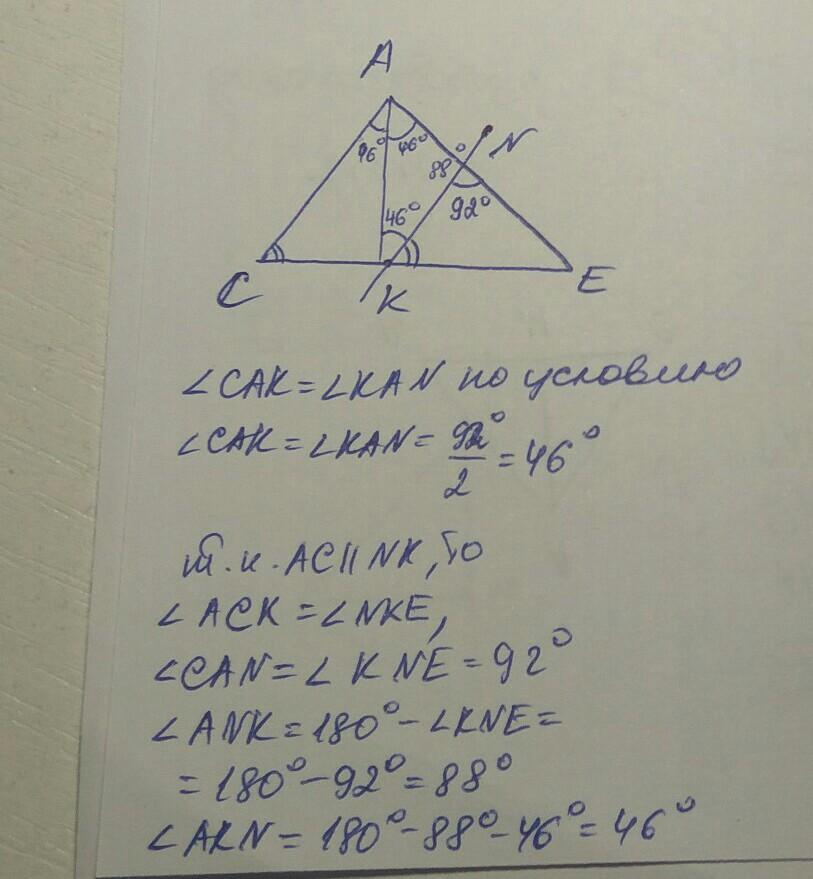 A
46° 46°
88° N
92°
46°
C K E
∠CAK = ∠KAN по условию
∠CAK = ∠KAN = 92°/2 = 46°
т.к. AC || NK, то
∠ACK = ∠NKE,
∠CAN = ∠KNE = 92°
∠ANK = 180° - ∠KNE =
= 180° - 92° = 88°
∠AKN = 180° - 88° - 46° = 46°